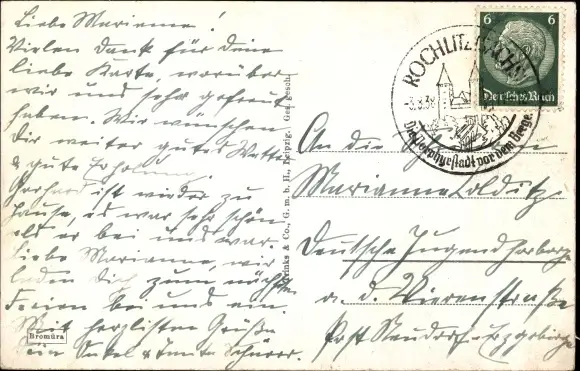 Liebe Marianne!
Vielen Dank für Deine
liebe Karte, worüber
wir uns sehr gefreut
haben. Wir wünschen
Dir weiter gutes Wetter
& gute Erholung
Gerhard ist wieder zu
Hause, es war sehr schön
als er bei uns war.
Liebe Marianne, wir
laden Dich zum nächsten
Ferien bei uns ein.
Mit herzlichsten Grüßen
Dein Onkel & Tante Schürer.
Bromüra
& Co., G. m. b. H., Leipzig. Ges. gesch.
ROCHLITZ
-3.8.38
Die Porphyrstadt vor dem Berge
6 6
Deutsches Reich
An die
Marianne Colditz
Deutsche Jugendherberge
a. d. Vierenstraße
Post Neudorf-Erzgebirge